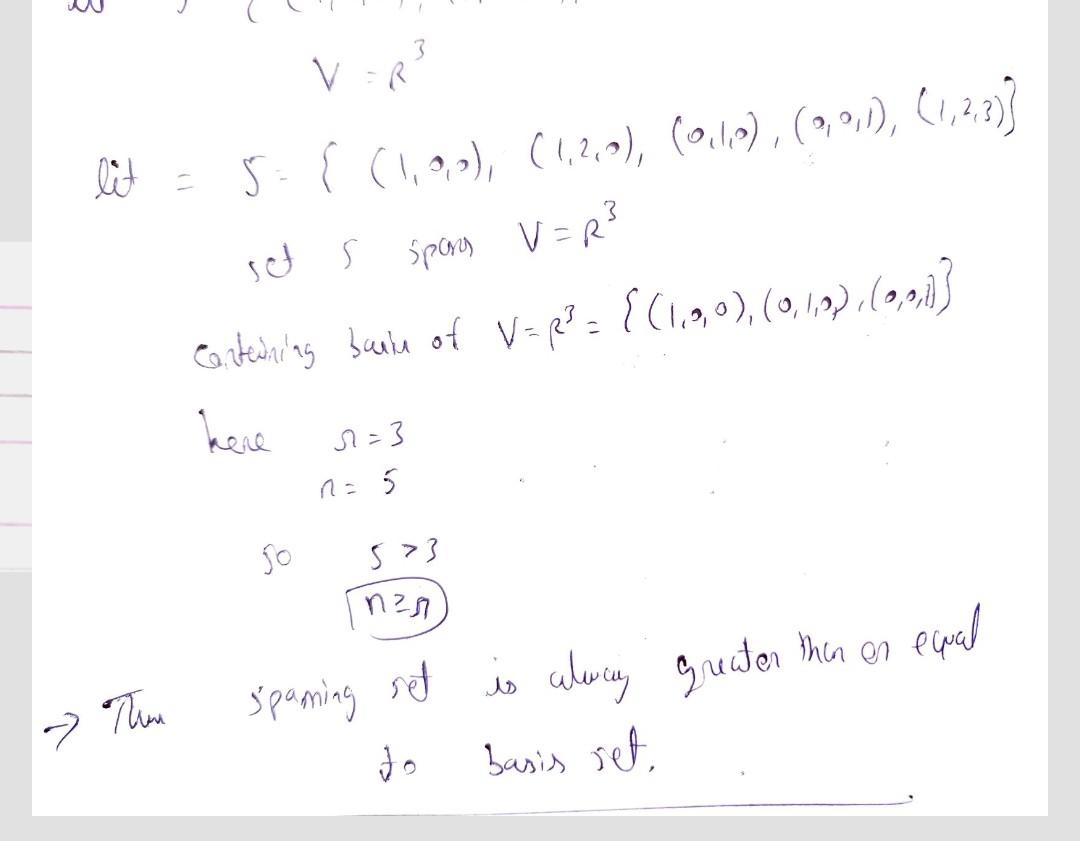 V = R³
let = S = { (1,0,0), (1,2,0), (0,1,0), (0,0,1), (1,2,3)}
set S spans V = R³
Contedning basis of V = R³ = { (1,0,0), (0,1,0), (0,0,1)}
here r = 3
n = 5
so 5 > 3
n ≥ r
→ Thus spaming set is alway greater than or equal
to basis set.